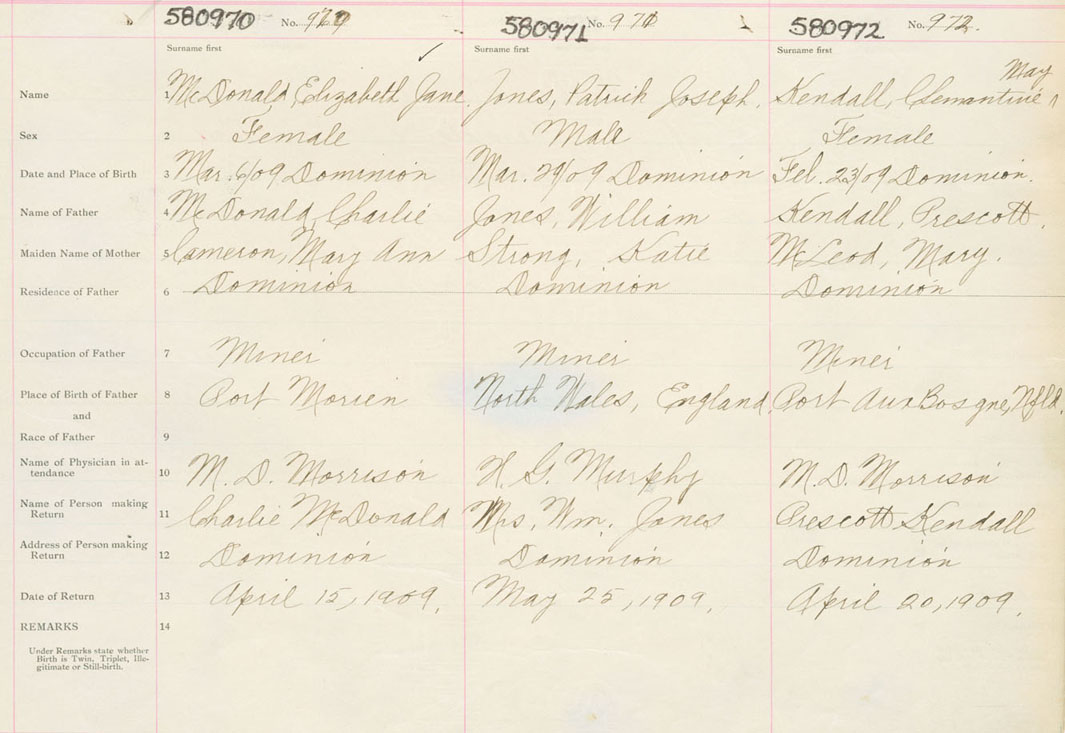 580970 No. 970 580971 No. 971 580972 No. 972.
Surname first Surname first Surname first
May
Name 1 McDonald, Elizabeth Jane Jones, Patrick Joseph. Kendall, Clemantine ^
Sex 2 Female Male Female
Date and Place of Birth 3 Mar. 6/09 Dominion Mar. 29/09 Dominion Feb. 23/09 Dominion.
Name of Father 4 McDonald, Charlie Jones, William Kendall, Prescott.
Maiden Name of Mother 5 Cameron, Mary Ann Strong, Katie McLeod, Mary.
Residence of Father 6 Dominion Dominion Dominion
Occupation of Father 7 Miner Miner Miner
Place of Birth of Father 8 Port Morien North Wales, England Port Aux Bosgne, Nfld.
and
Race of Father 9
Name of Physician in at-
tendance 10 M. D. Morrison H. G. Murphy M. D. Morrison
Name of Person making
Return 11 Charlie McDonald Mrs. Wm. Jones Prescott Kendall
Address of Person making
Return 12 Dominion Dominion Dominion
Date of Return 13 April 15, 1909. May 25, 1909. April 20, 1909.
REMARKS 14
Under Remarks state whether
Birth is Twin, Triplet, Ille-
gitimate or Still-birth.